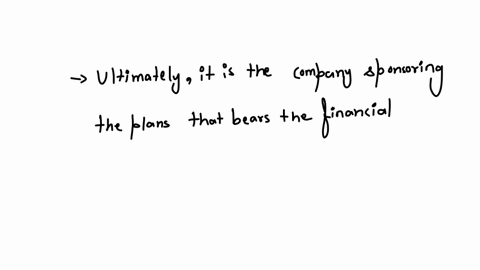 → Ultimately, it is the company sponsoring
the plans that bears the financial